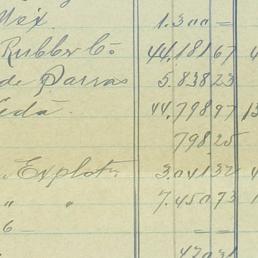 Mex. 1.300 =
Rubber Co 44.181 67 4
de Parras 5.838 23
Leda. 44.798 97 13
798 25
Explot. 3.041 32 4
" " 7.450 73 1
6 — = =
470 31